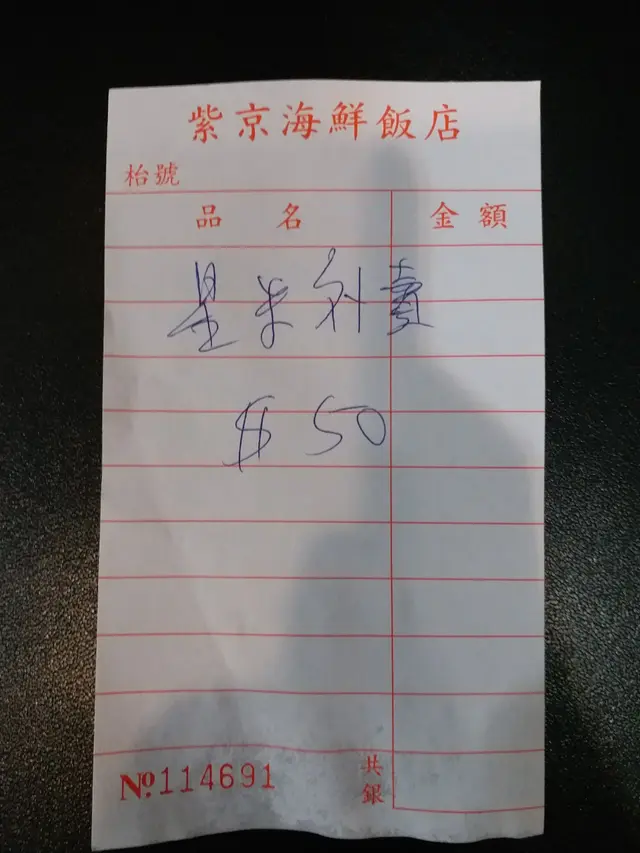 紫京海鮮飯店
枱號
品名 金額
星米外賣
$ 50
共銀
№114691